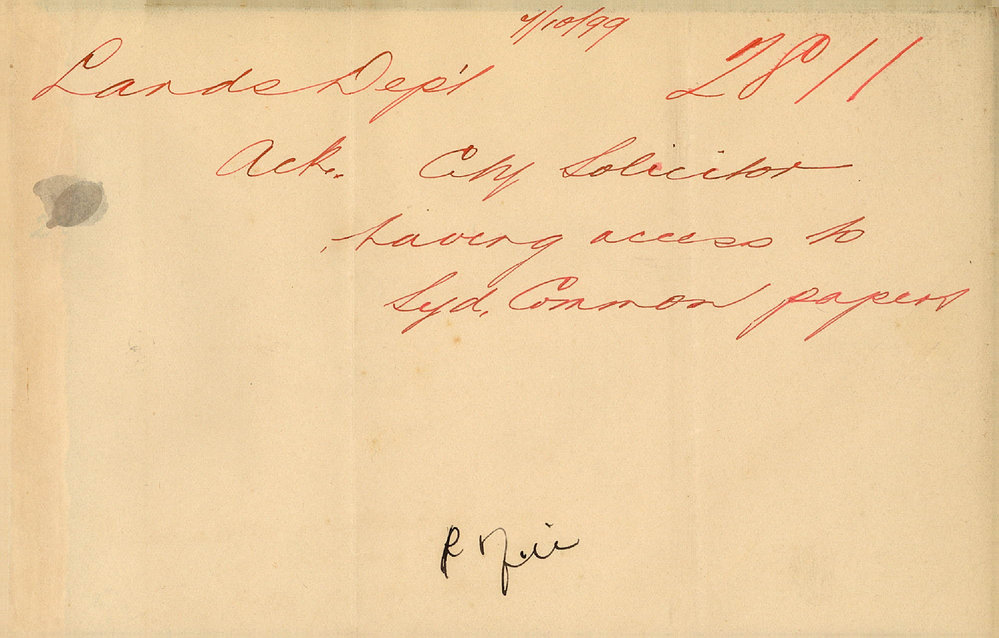 7/10/99
Lands Dep't 2811
Ack. City Solicitor
having access to
Syd. Common papers